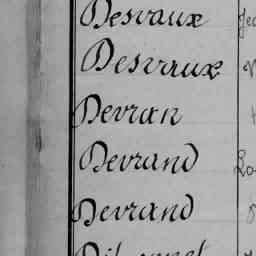 Desvaux
Desvaux
Devran
Devrand
Devrand